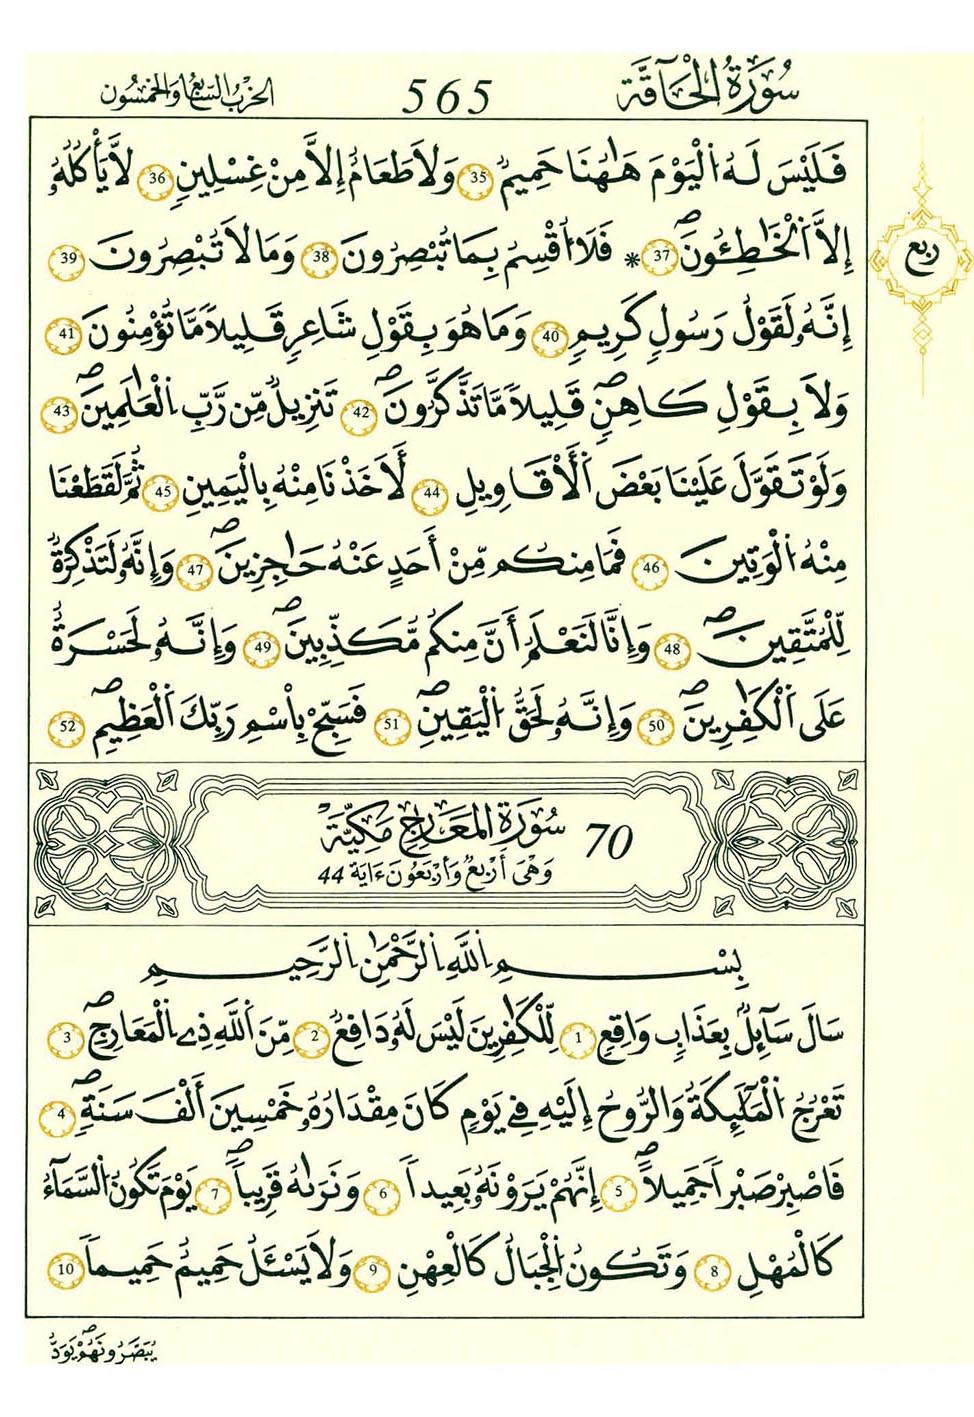 سُورَةُ الْحَآقَّة
565
الحزب السابع والخمسون
فَلَيْسَ لَهُ اُ۬لْيَوْمَ هَٰهُنَا حَمِيمٞ 35 وَلَا طَعَامٌ إِلَّا مِنْ غِسْلِينٖ 36 لَّا يَأْكُلُهُۥٓ
إِلَّا اَ۬لْخَٰطِـُٔونَۖ 37 * فَلَآ أُقْسِمُ بِمَا تُبْصِرُونَ 38 وَمَا لَا تُبْصِرُونَ 39
ربع
إِنَّهُۥ لَقَوْلُ رَسُولٖ كَرِيمٖ 40 وَمَا هُوَ بِقَوْلِ شَاعِرٖ قَلِيلاٗ مَّا تُؤْمِنُونَ 41
وَلَا بِقَوْلِ كَاهِنٖۖ قَلِيلاٗ مَّا تَذَّكَّرُونَۖ 42 تَنزِيلٞ مِّن رَّبِّ اِ۬لْعَٰلَمِينَۖ 43
وَلَوْ تَقَوَّلَ عَلَيْنَا بَعْضَ اَ۬لْأَقَاوِيلِ 44 لَأَخَذْنَا مِنْهُ بِالْيَمِينِ 45 ثُمَّ لَقَطَعْنَا
مِنْهُ اُ۬لْوَتِينَ 46 فَمَا مِنكُم مِّنْ أَحَدٍ عَنْهُ حَٰجِزِينَۖ 47 وَإِنَّهُۥ لَتَذْكِرَةٞ
لِّلْمُتَّقِينَۖ 48 وَإِنَّا لَنَعْلَمُ أَنَّ مِنكُم مُّكَذِّبِينَۖ 49 وَإِنَّهُۥ لَحَسْرَةٌ
عَلَى اَ۬لْكَٰفِرِينَۖ 50 وَإِنَّهُۥ لَحَقُّ اُ۬لْيَقِينِۖ 51 فَسَبِّحْ بِاسْمِ رَبِّكَ اَ۬لْعَظِيمِۖ 52
70 سُورَةُ المَعَارِجِ مَكِّيَّة
وَهْىَ أَرْبَعٌ وَأَرْبَعُونَ ءَايَة 44
بِسْمِ اِ۬للَّهِ اِ۬لرَّحْمَٰنِ اِ۬لرَّحِيمِ
سَالَ سَآئِلُۢ بِعَذَابٖ وَاقِعٖ 1 لِّلْكَٰفِرِينَ لَيْسَ لَهُۥ دَافِعٞ 2 مِّنَ اَ۬للَّهِ ذِے اِ۬لْمَعَارِجِۖ 3
تَعْرُجُ اُ۬لْمَلَٰٓئِكَةُ وَالرُّوحُ إِلَيْهِ فِے يَوْمٖ كَانَ مِقْدَارُهُۥ خَمْسِينَ أَلْفَ سَنَةٖۖ 4
فَاصْبِرْ صَبْراٗ جَمِيلاًۖ 5 إِنَّهُمْ يَرَوْنَهُۥ بَعِيداٗ 6 وَنَر۪ىٰهُ قَرِيباٗۖ 7 يَوْمَ تَكُونُ اُ۬لسَّمَآءُ
كَالْمُهْلِ 8 وَتَكُونُ اُ۬لْجِبَالُ كَالْعِهْنِ 9 وَلَا يَسْـَٔلُ حَمِيمٌ حَمِيماٗ 10
يُبَصَّرُونَهُمْۖ يَوَدُّ